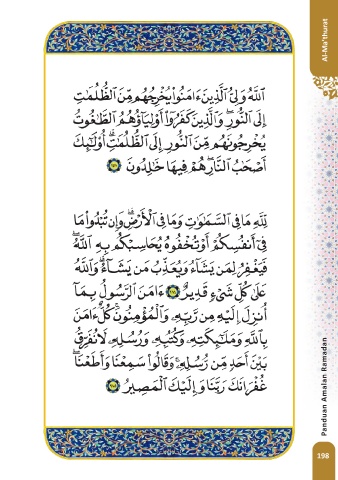 Al-Ma'thurat
ٱللَّهُ وَلِيُّ ٱلَّذِينَ ءَامَنُوا۟ يُخْرِجُهُم مِّنَ ٱلظُّلُمَٰتِ
إِلَى ٱلنُّورِ ۖ وَٱلَّذِينَ كَفَرُوٓا۟ أَوْلِيَآؤُهُمُ ٱلطَّٰغُوتُ
يُخْرِجُونَهُم مِّنَ ٱلنُّورِ إِلَى ٱلظُّلُمَٰتِ ۗ أُو۟لَٰٓئِكَ
أَصْحَٰبُ ٱلنَّارِ ۖ هُمْ فِيهَا خَٰلِدُونَ
لِلَّهِ مَا فِى ٱلسَّمَٰوَٰتِ وَمَا فِى ٱلْأَرْضِ ۗ وَإِن تُبْدُوا۟ مَا
فِىٓ أَنفُسِكُمْ أَوْ تُخْفُوهُ يُحَاسِبْكُم بِهِ ٱللَّهُ ۖ
فَيَغْفِرُ لِمَن يَشَآءُ وَيُعَذِّبُ مَن يَشَآءُ ۗ وَٱللَّهُ
عَلَىٰ كُلِّ شَىْءٍ قَدِيرٌ ءَامَنَ ٱلرَّسُولُ بِمَآ
أُنزِلَ إِلَيْهِ مِن رَّبِّهِۦ وَٱلْمُؤْمِنُونَ ۚ كُلٌّ ءَامَنَ
بِٱللَّهِ وَمَلَٰٓئِكَتِهِۦ وَكُتُبِهِۦ وَرُسُلِهِۦ لَا نُفَرِّقُ
بَيْنَ أَحَدٍ مِّن رُّسُلِهِۦ ۚ وَقَالُوا۟ سَمِعْنَا وَأَطَعْنَا ۖ
غُفْرَانَكَ رَبَّنَا وَإِلَيْكَ ٱلْمَصِيرُ
Panduan Amalan Ramadan
198